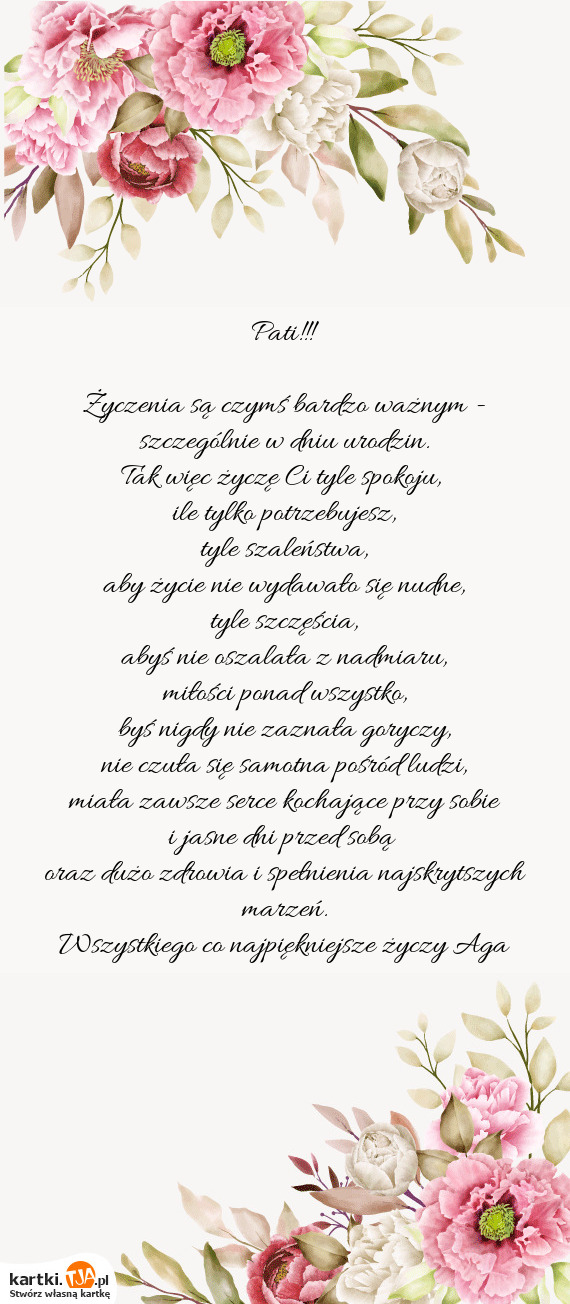 Pati!!!
Życzenia są czymś bardzo ważnym -
szczególnie w dniu urodzin.
Tak więc życzę Ci tyle spokoju,
ile tylko potrzebujesz,
tyle szaleństwa,
aby życie nie wydawało się nudne,
tyle szczęścia,
abyś nie oszalała z nadmiaru,
miłości ponad wszystko,
byś nigdy nie zaznała goryczy,
nie czuła się samotna pośród ludzi,
miała zawsze serce kochające przy sobie
i jasne dni przed sobą
oraz dużo zdrowia i spełnienia najskrytszych
marzeń.
Wszystkiego co najpiękniejsze życzy Aga
kartki.TJA.pl
Stwórz własną kartkę